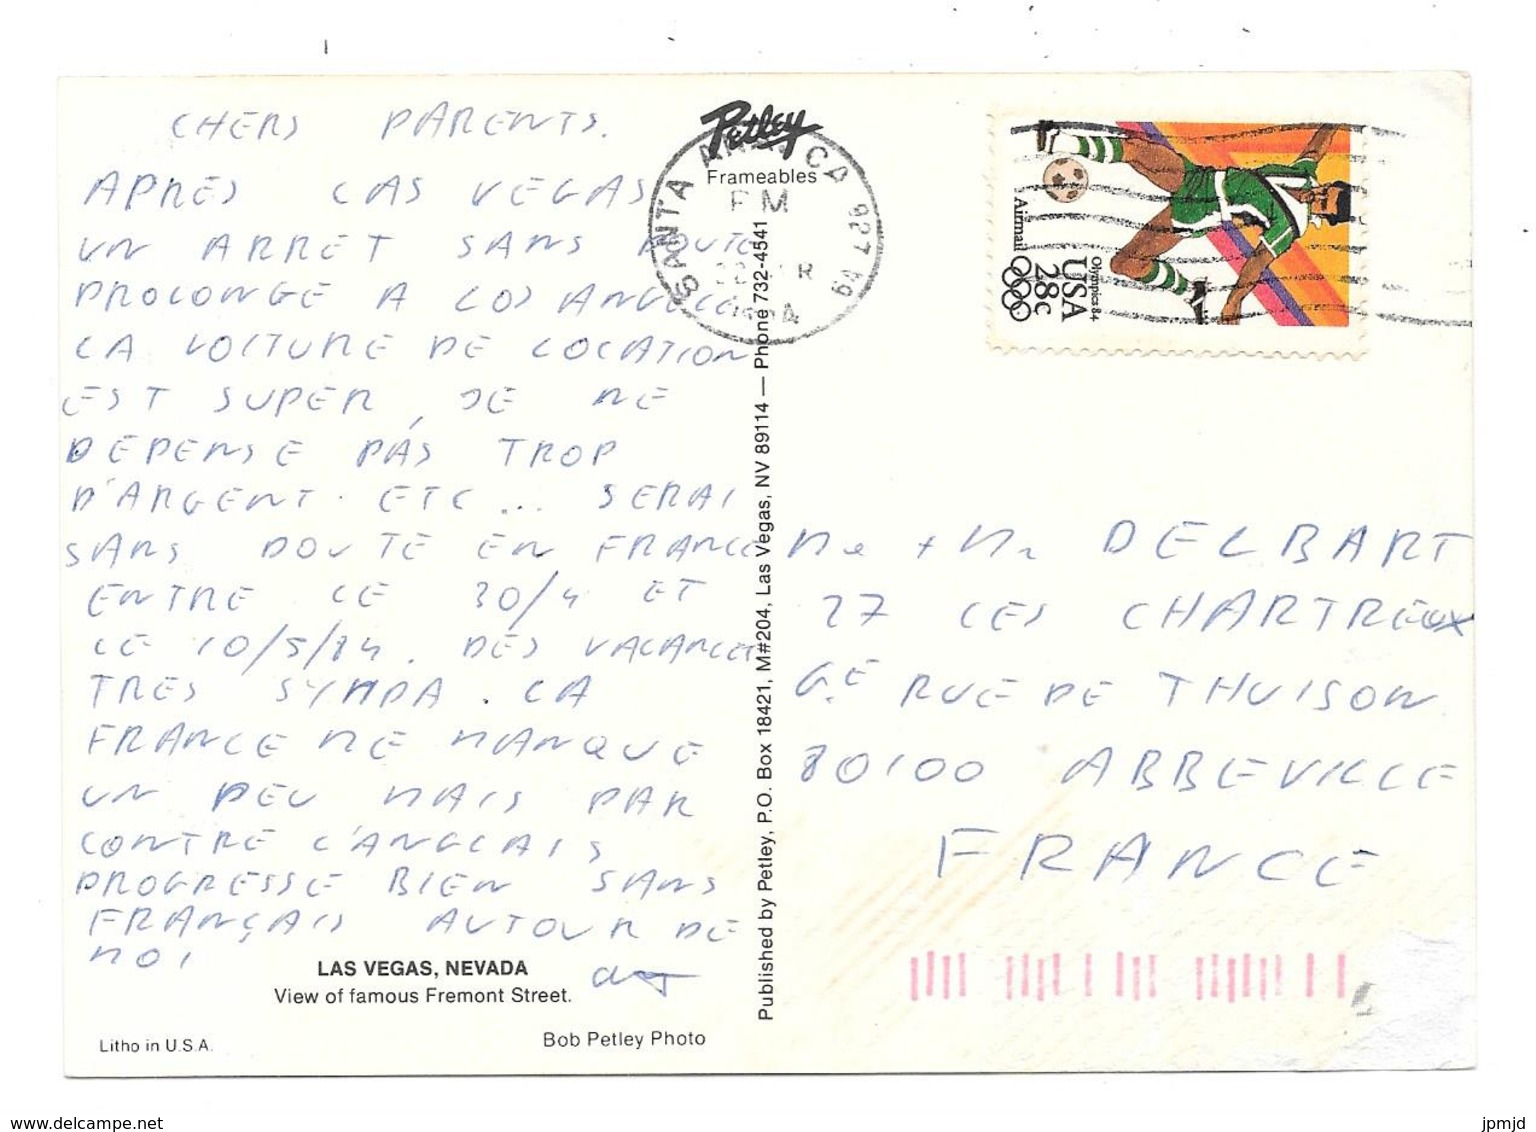 CHERS PARENTS.
APRES LAS VEGAS
UN ARRET SANS DOUTE
PROLONGE A LOS ANGELES
LA VOITURE DE LOCATION
EST SUPER, JE NE
DEPENSE PAS TROP
D'ARGENT. ETC... SERAI
SANS DOUTE EN FRANCE
ENTRE LE 30/4 ET
LE 10/5/84. DES VACANCES
TRES SYMPA. LA
FRANCE ME MANQUE
UN PEU MAIS PAR
CONTRE L'ANGLAIS
PROGRESSE BIEN SANS
FRANÇAIS AUTOUR DE
MOI
LAS VEGAS, NEVADA
View of famous Fremont Street.
Litho in U.S.A.
Bob Petley Photo
Petley
Frameables
SANTA ANA, CA 927
PM
Published by Petley, P.O. Box 18421, M#204, Las Vegas, NV 89114 — Phone 732-4541
Airmail
Olympics 84
USA
28c
Me + Mr DELBART
27 LES CHARTREUX
RUE DE THUISON
80100 ABBEVILLE
FRANCE
www.delcampe.net
jpmjd